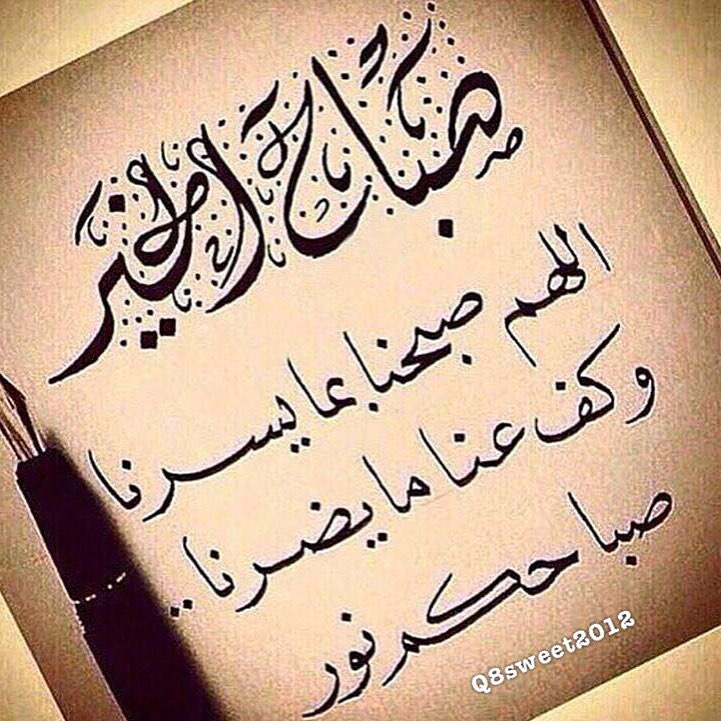 صباح الخير
اللهم صبحنا بما يسرنا
وكف عنا ما يضرنا..
صباحكم نور
Q8sweet2012